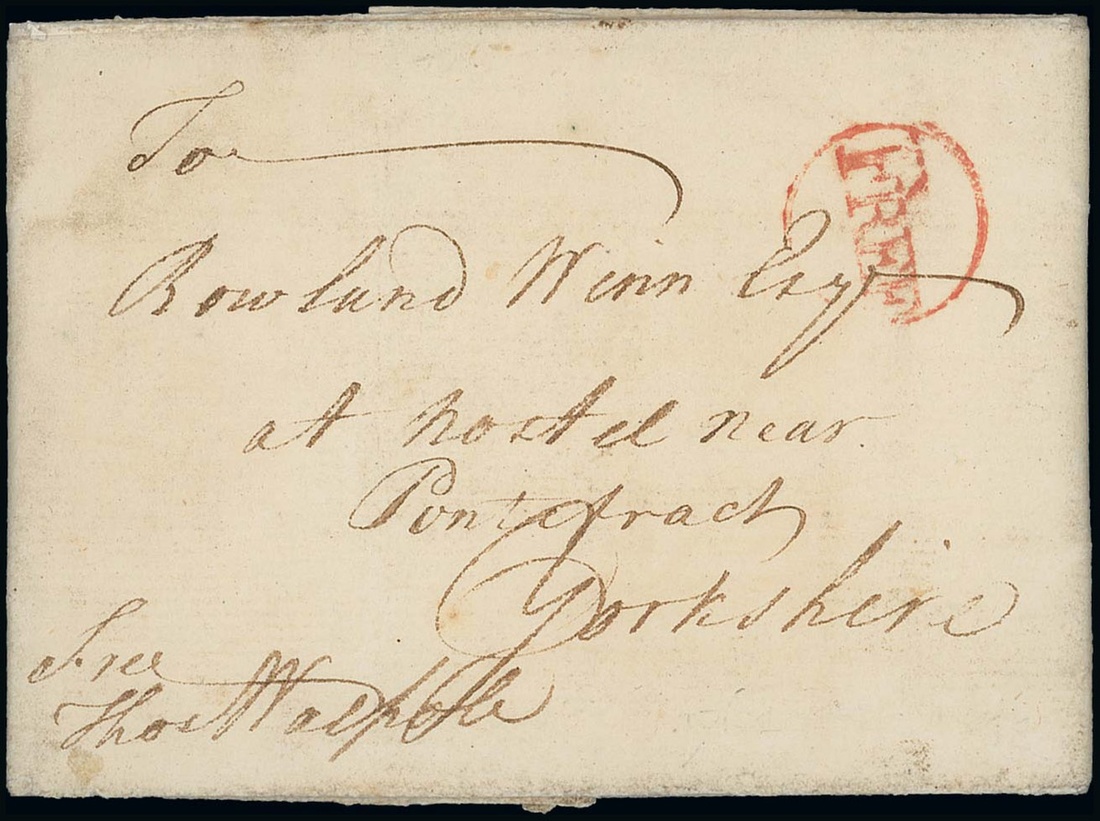 To
FREE
Rowland Winn Esqr
at Nostel near
Pontefract
Yorkshire
Free
Thos Walpole